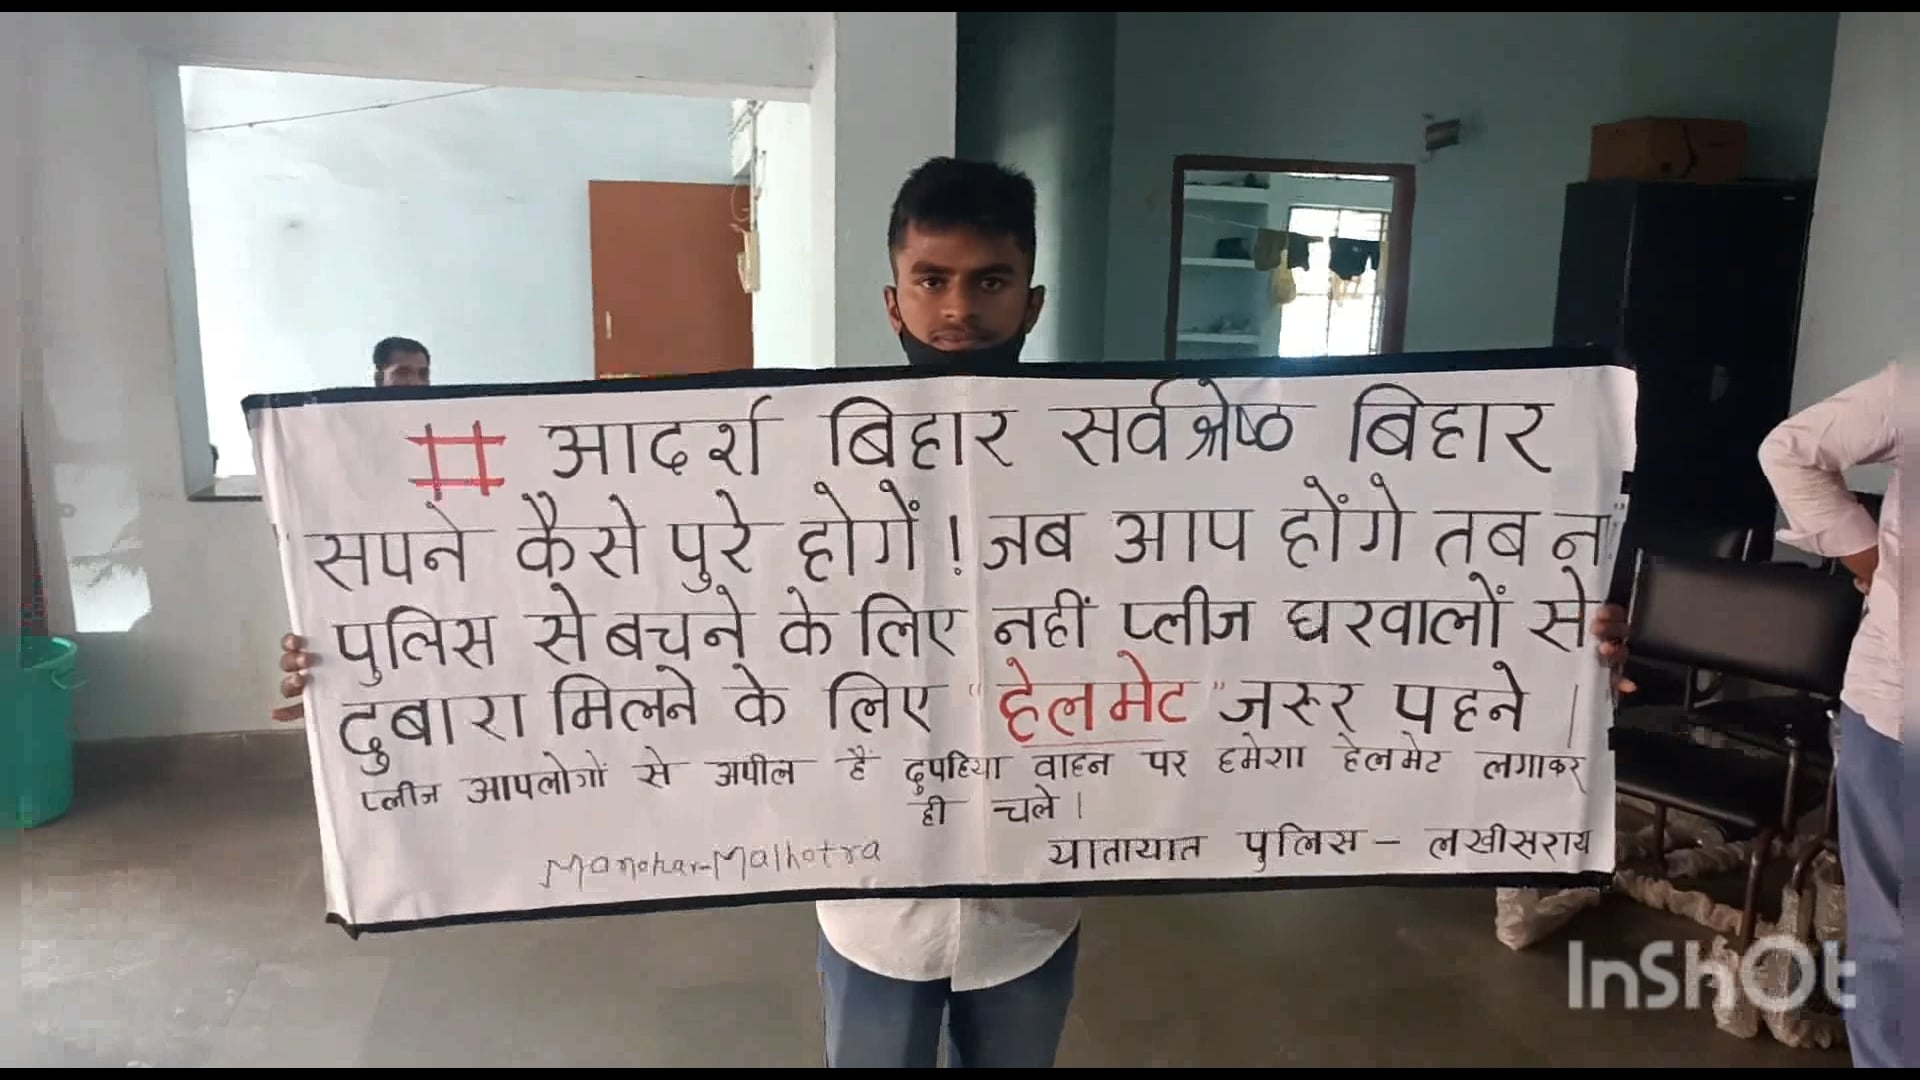 # आदर्श बिहार सर्वश्रेष्ठ बिहार
सपने कैसे पुरे होगें! जब आप होंगे तब न
पुलिस से बचने के लिए नहीं प्लीज घरवालों से
दुबारा मिलने के लिए "हेलमेट" जरूर पहने।
प्लीज आपलोगों से अपील हैं दुपहिया वाहन पर हमेशा हेलमेट लगाकर
ही चले।
Manohar-Malhotra
यातायात पुलिस - लखीसराय
InShOt